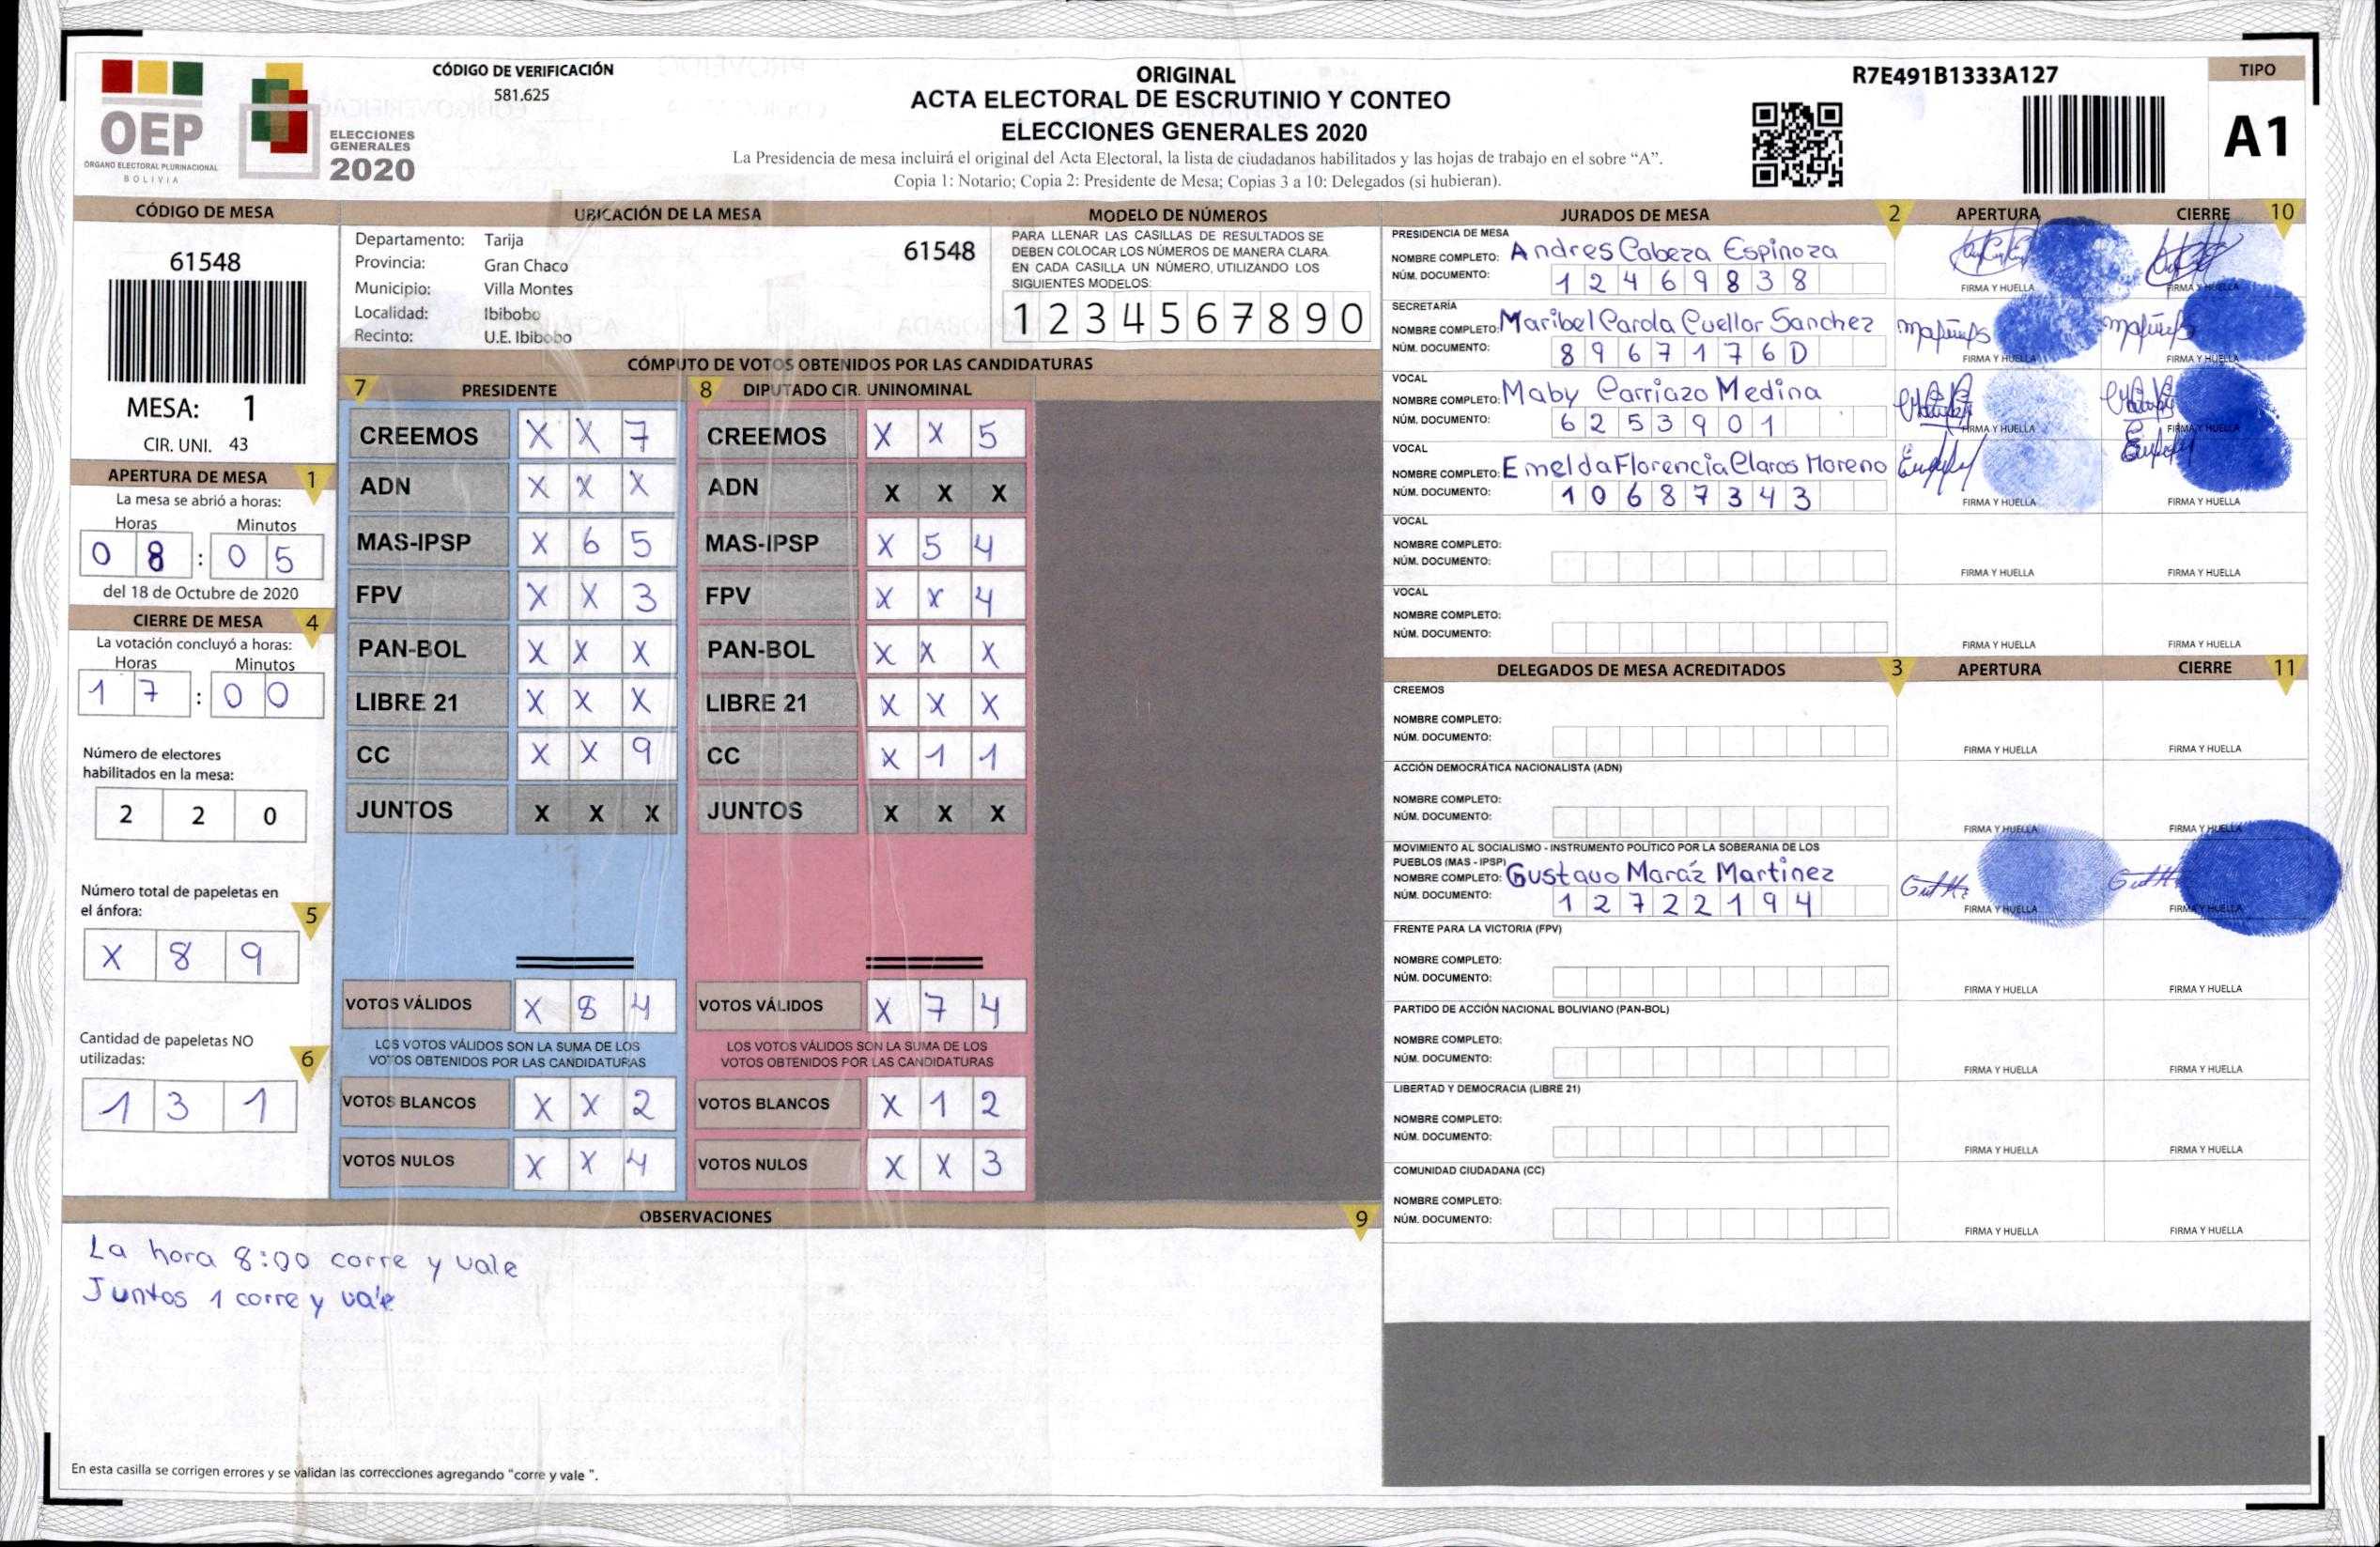 OEP
ÓRGANO ELECTORAL PLURINACIONAL
BOLIVIA
ELECCIONES
GENERALES
2020
CÓDIGO DE VERIFICACIÓN
581.625
ORIGINAL
ACTA ELECTORAL DE ESCRUTINIO Y CONTEO
ELECCIONES GENERALES 2020
La Presidencia de mesa incluirá el original del Acta Electoral, la lista de ciudadanos habilitados y las hojas de trabajo en el sobre “A”.
Copia 1: Notario; Copia 2: Presidente de Mesa; Copias 3 a 10: Delegados (si hubieran).
R7E491B1333A127
TIPO
A1
CÓDIGO DE MESA
61548
MESA: 1
CIR. UNI. 43
APERTURA DE MESA 1
La mesa se abrió a horas:
Horas Minutos
0 8 : 0 5
del 18 de Octubre de 2020
CIERRE DE MESA 4
La votación concluyó a horas:
Horas Minutos
1 7 : 0 0
Número de electores
habilitados en la mesa:
2 2 0
Número total de papeletas en
el ánfora: 5
X 8 9
Cantidad de papeletas NO
utilizadas: 6
1 3 1
UBICACIÓN DE LA MESA
Departamento: Tarija
Provincia: Gran Chaco
Municipio: Villa Montes
Localidad: Ibibobo
Recinto: U.E. Ibibobo
61548
MODELO DE NÚMEROS
PARA LLENAR LAS CASILLAS DE RESULTADOS SE
DEBEN COLOCAR LOS NÚMEROS DE MANERA CLARA.
EN CADA CASILLA UN NÚMERO, UTILIZANDO LOS
SIGUIENTES MODELOS:
1 2 3 4 5 6 7 8 9 0
CÓMPUTO DE VOTOS OBTENIDOS POR LAS CANDIDATURAS
7 PRESIDENTE 8 DIPUTADO CIR. UNINOMINAL
CREEMOS X X 7 CREEMOS X X 5
ADN X X X ADN X X X
MAS-IPSP X 6 5 MAS-IPSP X 5 4
FPV X X 3 FPV X X 4
PAN-BOL X X X PAN-BOL X X X
LIBRE 21 X X X LIBRE 21 X X X
CC X X 9 CC X 1 1
JUNTOS X X X JUNTOS X X X
VOTOS VÁLIDOS X 8 4 VOTOS VÁLIDOS X 7 4
LOS VOTOS VÁLIDOS SON LA SUMA DE LOS LOS VOTOS VÁLIDOS SON LA SUMA DE LOS
VOTOS OBTENIDOS POR LAS CANDIDATURAS VOTOS OBTENIDOS POR LAS CANDIDATURAS
VOTOS BLANCOS X X 2 VOTOS BLANCOS X 1 2
VOTOS NULOS X X 4 VOTOS NULOS X X 3
OBSERVACIONES 9
La hora 8:00 corre y vale
Juntos 1 corre y vale
En esta casilla se corrigen errores y se validan las correcciones agregando “corre y vale ”.
JURADOS DE MESA 2 APERTURA CIERRE 10
PRESIDENCIA DE MESA
NOMBRE COMPLETO: Andres Cabeza Espinoza
NÚM. DOCUMENTO: 1 2 4 6 9 8 3 8
FIRMA Y HUELLA FIRMA Y HUELLA
SECRETARÍA
NOMBRE COMPLETO: Maribel Carola Cuellar Sanchez
NÚM. DOCUMENTO: 8 9 6 7 1 7 6 D
FIRMA Y HUELLA FIRMA Y HUELLA
VOCAL
NOMBRE COMPLETO: Maby Carriazo Medina
NÚM. DOCUMENTO: 6 2 5 3 9 0 1
FIRMA Y HUELLA FIRMA Y HUELLA
VOCAL
NOMBRE COMPLETO: Emelda Florencia Claros Moreno
NÚM. DOCUMENTO: 1 0 6 8 7 3 4 3
FIRMA Y HUELLA FIRMA Y HUELLA
VOCAL
NOMBRE COMPLETO:
NÚM. DOCUMENTO:
FIRMA Y HUELLA FIRMA Y HUELLA
VOCAL
NOMBRE COMPLETO:
NÚM. DOCUMENTO:
FIRMA Y HUELLA FIRMA Y HUELLA
DELEGADOS DE MESA ACREDITADOS 3 APERTURA CIERRE 11
CREEMOS
NOMBRE COMPLETO:
NÚM. DOCUMENTO:
FIRMA Y HUELLA FIRMA Y HUELLA
ACCIÓN DEMOCRÁTICA NACIONALISTA (ADN)
NOMBRE COMPLETO:
NÚM. DOCUMENTO:
FIRMA Y HUELLA FIRMA Y HUELLA
MOVIMIENTO AL SOCIALISMO - INSTRUMENTO POLÍTICO POR LA SOBERANIA DE LOS
PUEBLOS (MAS - IPSP)
NOMBRE COMPLETO: Gustavo Maráz Martinez
NÚM. DOCUMENTO: 1 2 7 2 2 1 9 4
FIRMA Y HUELLA FIRMA Y HUELLA
FRENTE PARA LA VICTORIA (FPV)
NOMBRE COMPLETO:
NÚM. DOCUMENTO:
FIRMA Y HUELLA FIRMA Y HUELLA
PARTIDO DE ACCIÓN NACIONAL BOLIVIANO (PAN-BOL)
NOMBRE COMPLETO:
NÚM. DOCUMENTO:
FIRMA Y HUELLA FIRMA Y HUELLA
LIBERTAD Y DEMOCRACIA (LIBRE 21)
NOMBRE COMPLETO:
NÚM. DOCUMENTO:
FIRMA Y HUELLA FIRMA Y HUELLA
COMUNIDAD CIUDADANA (CC)
NOMBRE COMPLETO:
NÚM. DOCUMENTO:
FIRMA Y HUELLA FIRMA Y HUELLA